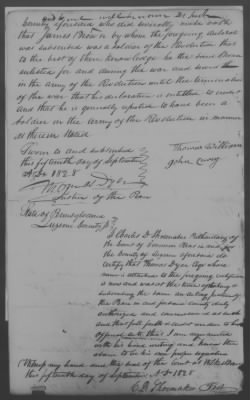 County aforesaid who did severally make oath
that James Brown by whom the foregoing declaration
was subscribed was a soldier of the Revolution that
to the best of their knowledge he the said Brown
enlisted for and during the war and served
in the army of the Revolution until the termination
of the war that his declaration is entitled to credit
and that he is generally reputed to have been a
soldier in the Army of the Revolution in manner
as therein stated
Sworn to and subscribed
this fifteenth day of September
A.D. 1828
Thomas Williams
John
Thomas Dyer
Justice of the Peace
State of Pennsylvania
Luzerne County ss
I Charles D. Shoemaker Prothonotary of
the Court of Common Pleas in and for
the County of Luzerne aforesaid do
certify that Thomas Dyer Esqr whose
name is attached to the foregoing certificate
is now and was at the time of taking &
subscribing the same an acting Justice of
the Peace in and for said county duly
authorized and commissioned as such
and that full faith & credit is due to his
official acts that I am acquainted
with his hand writing and know the
above to be his own proper signature
Witness my hand and the seal of the Court at Wilkesbarre
this fifteenth day of September A.D. 1828
C. D. Shoemaker Proth